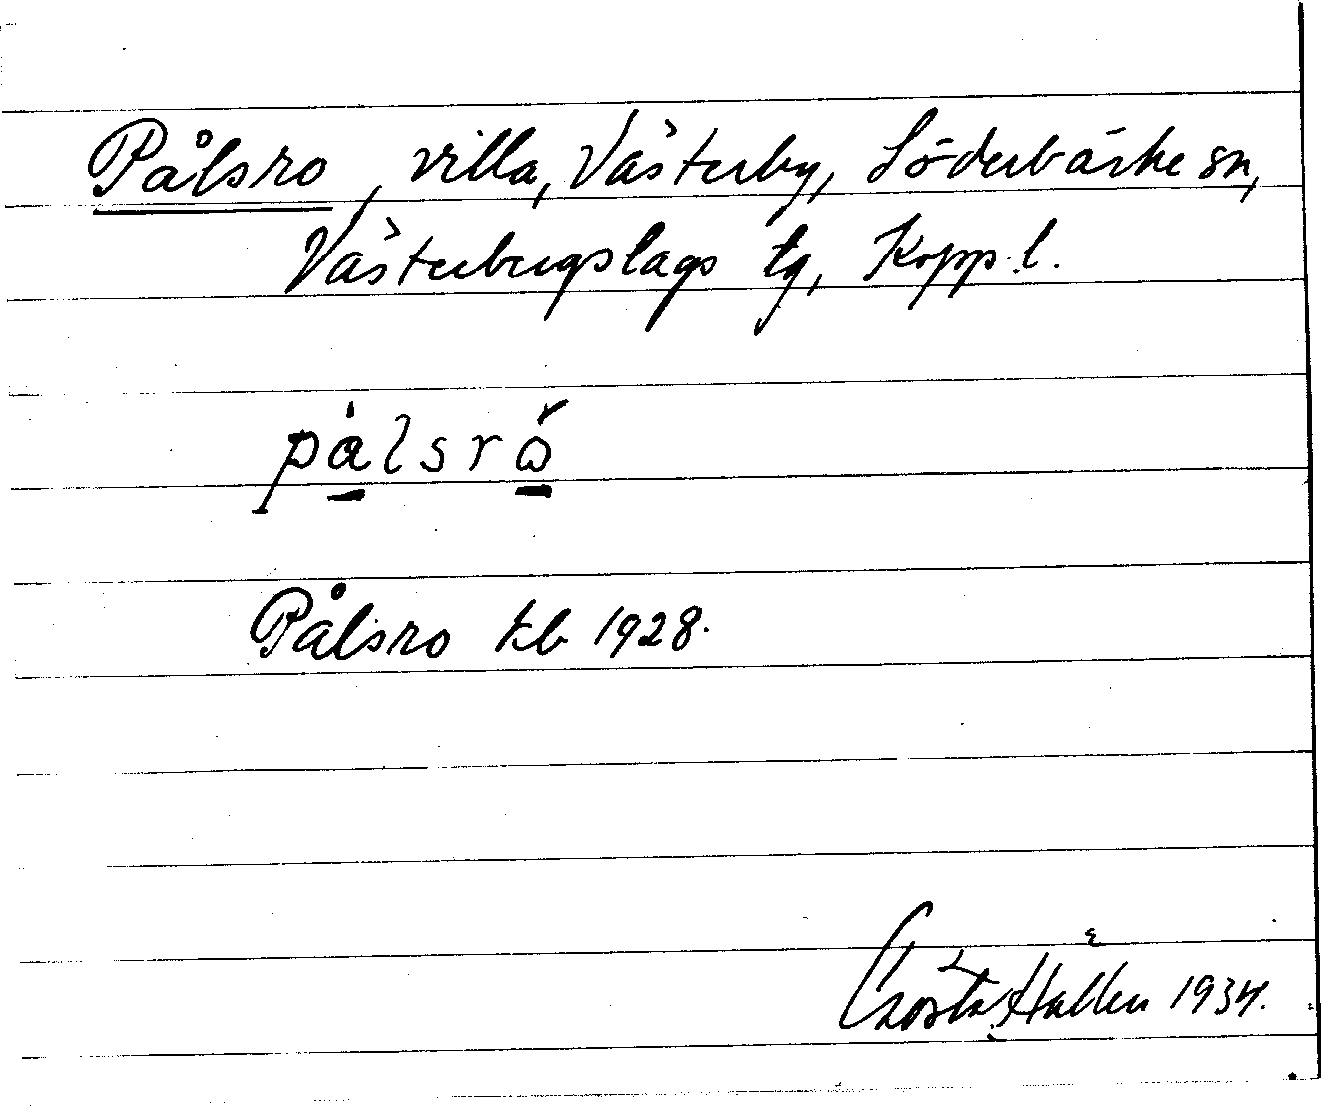 Pålsro, villa, Västerby, Söderbärke sn,
Västerbergslags tg, Kopp. l.
pålsrω̌
Pålsro kb 1928.
Gösta Hällén 1934.